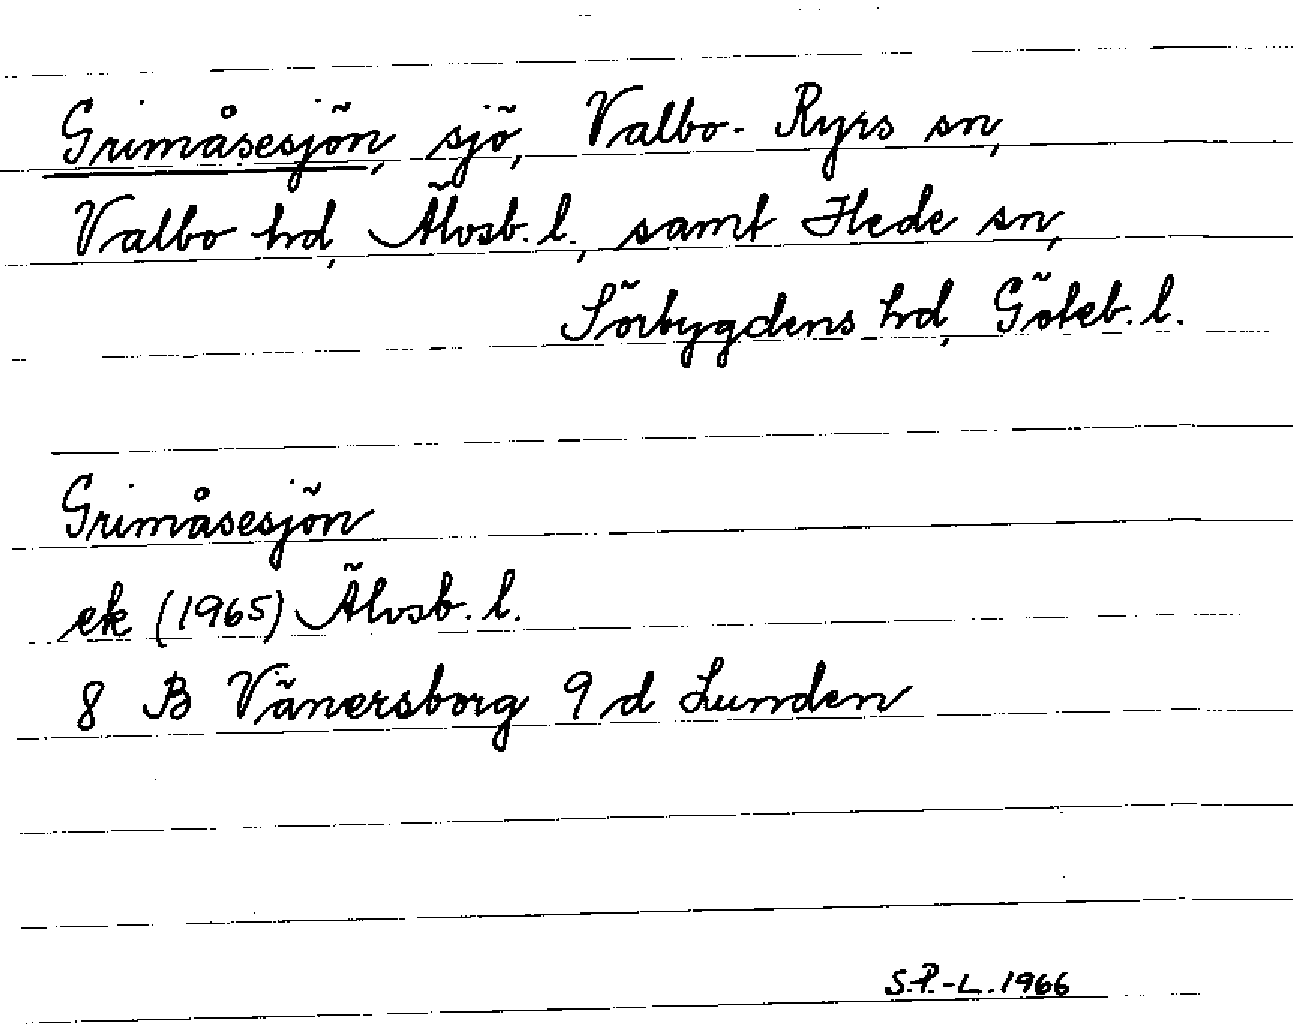 Grimåsesjön, sjö, Valbo-Ryrs sn,
Valbo hd, Älvsb. l., samt Hede sn,
Sörbygdens hd, Göteb. l.
Grimåsesjön
ek (1965) Älvsb. l.
8 B Vänersborg 9 d Lunden
S.P.-L. 1966